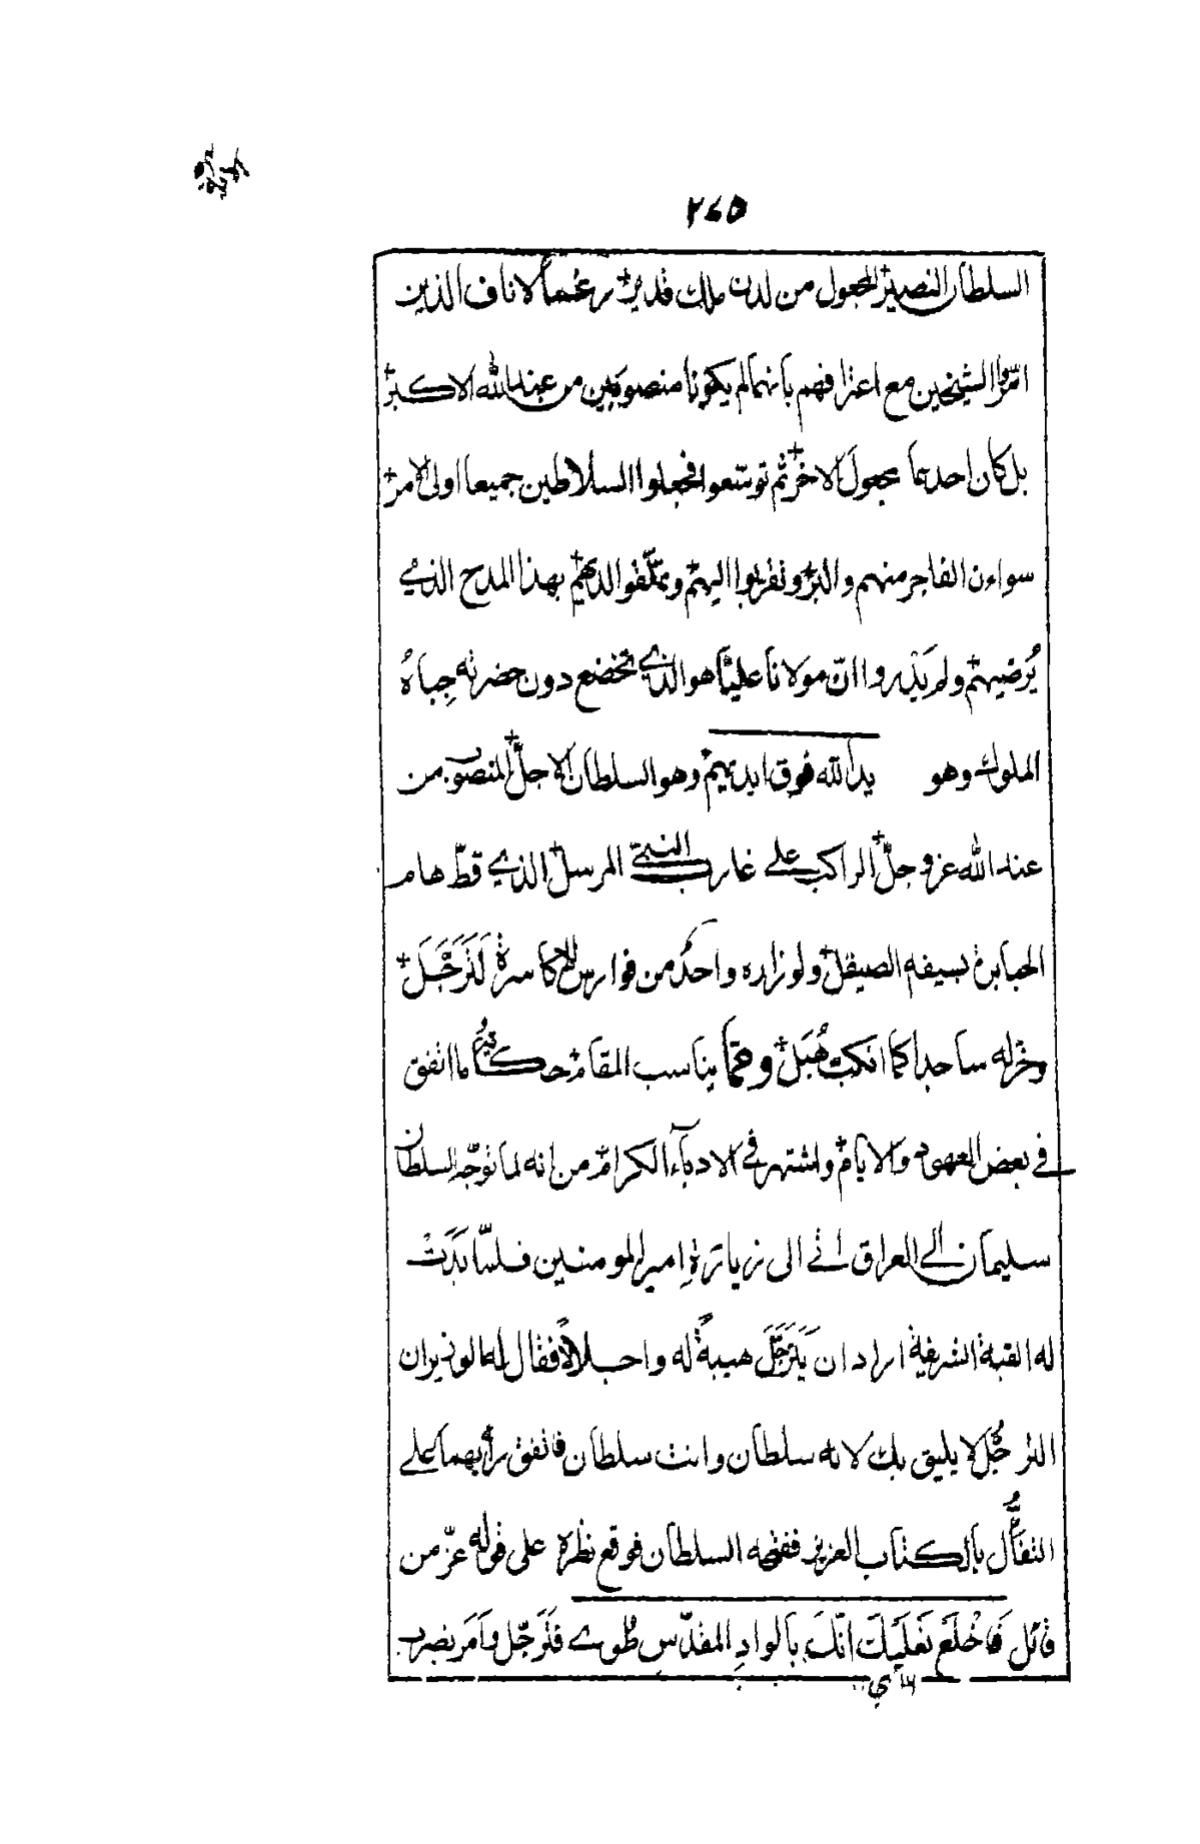 ٢٤٥
السلطان النصير المجعول من لدن ملك قدير رغماً لاناف الذين
امّروا الشيخين مع اعترافهم بانهما لم يكونا منصوبين من عند الله الاكبر
بل كان احدهما مجعول الاخر ثم توسّعوا فجعلوا السلاطين جميعا اولى الامر
سواء ن الفاجر منهم والبرّ وتقربوا اليهم وتملّقوا لديهم بهذا المدح الذي
يُرضيهم ولم يَذروا انّ مولانا عليّا هو الذي تخضع دون حضرته جِباهُ
الملوك وهو يد الله فوق ايديهم وهو السلطان الاجلّ المنصوب من
عند الله عز وجلّ الراكب على غارب النبيّ المرسل الذي قطّ هام
الجبابرة بسيفه الصيقل ولو زاره واحدٌ من فوارس الاكاسرة لَتَرَجَّلَ
وخرّ له ساجدا كما انكبّ هُبَل وممّا يناسب المقام حكايةُ ما اتفق
في بعض العهود والايام واشتهر في الادباء الكرام من انه لما توجّه السلطان
سليمان الى العراق اتى الى زيارةِ امير المومنين فلمّا بَدَتْ
له القبة الشريفة اراد ان يَتَرَجَّلَ هيبةً له واجلالاً فقال له الوزير ان
الترجُّل لا يليق بك لانه سلطان وانت سلطان فاتفق رأيهما على
التفأُّل بالكتاب العزيز ففتحه السلطان فوقع نظره على قوله عزّ من
قائل فَاخْلَع نَعْلَيْكَ انَّكَ بالوادِ المقدّس طُوى فتَرجّل وأمَر بضرب